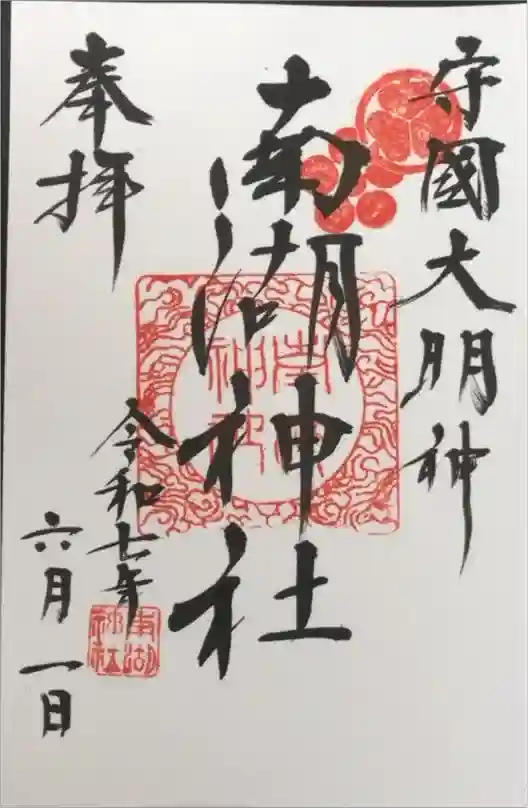 守國大明神
南湖神社
奉拝
令和七年
六月一日
南湖神社
南湖神社